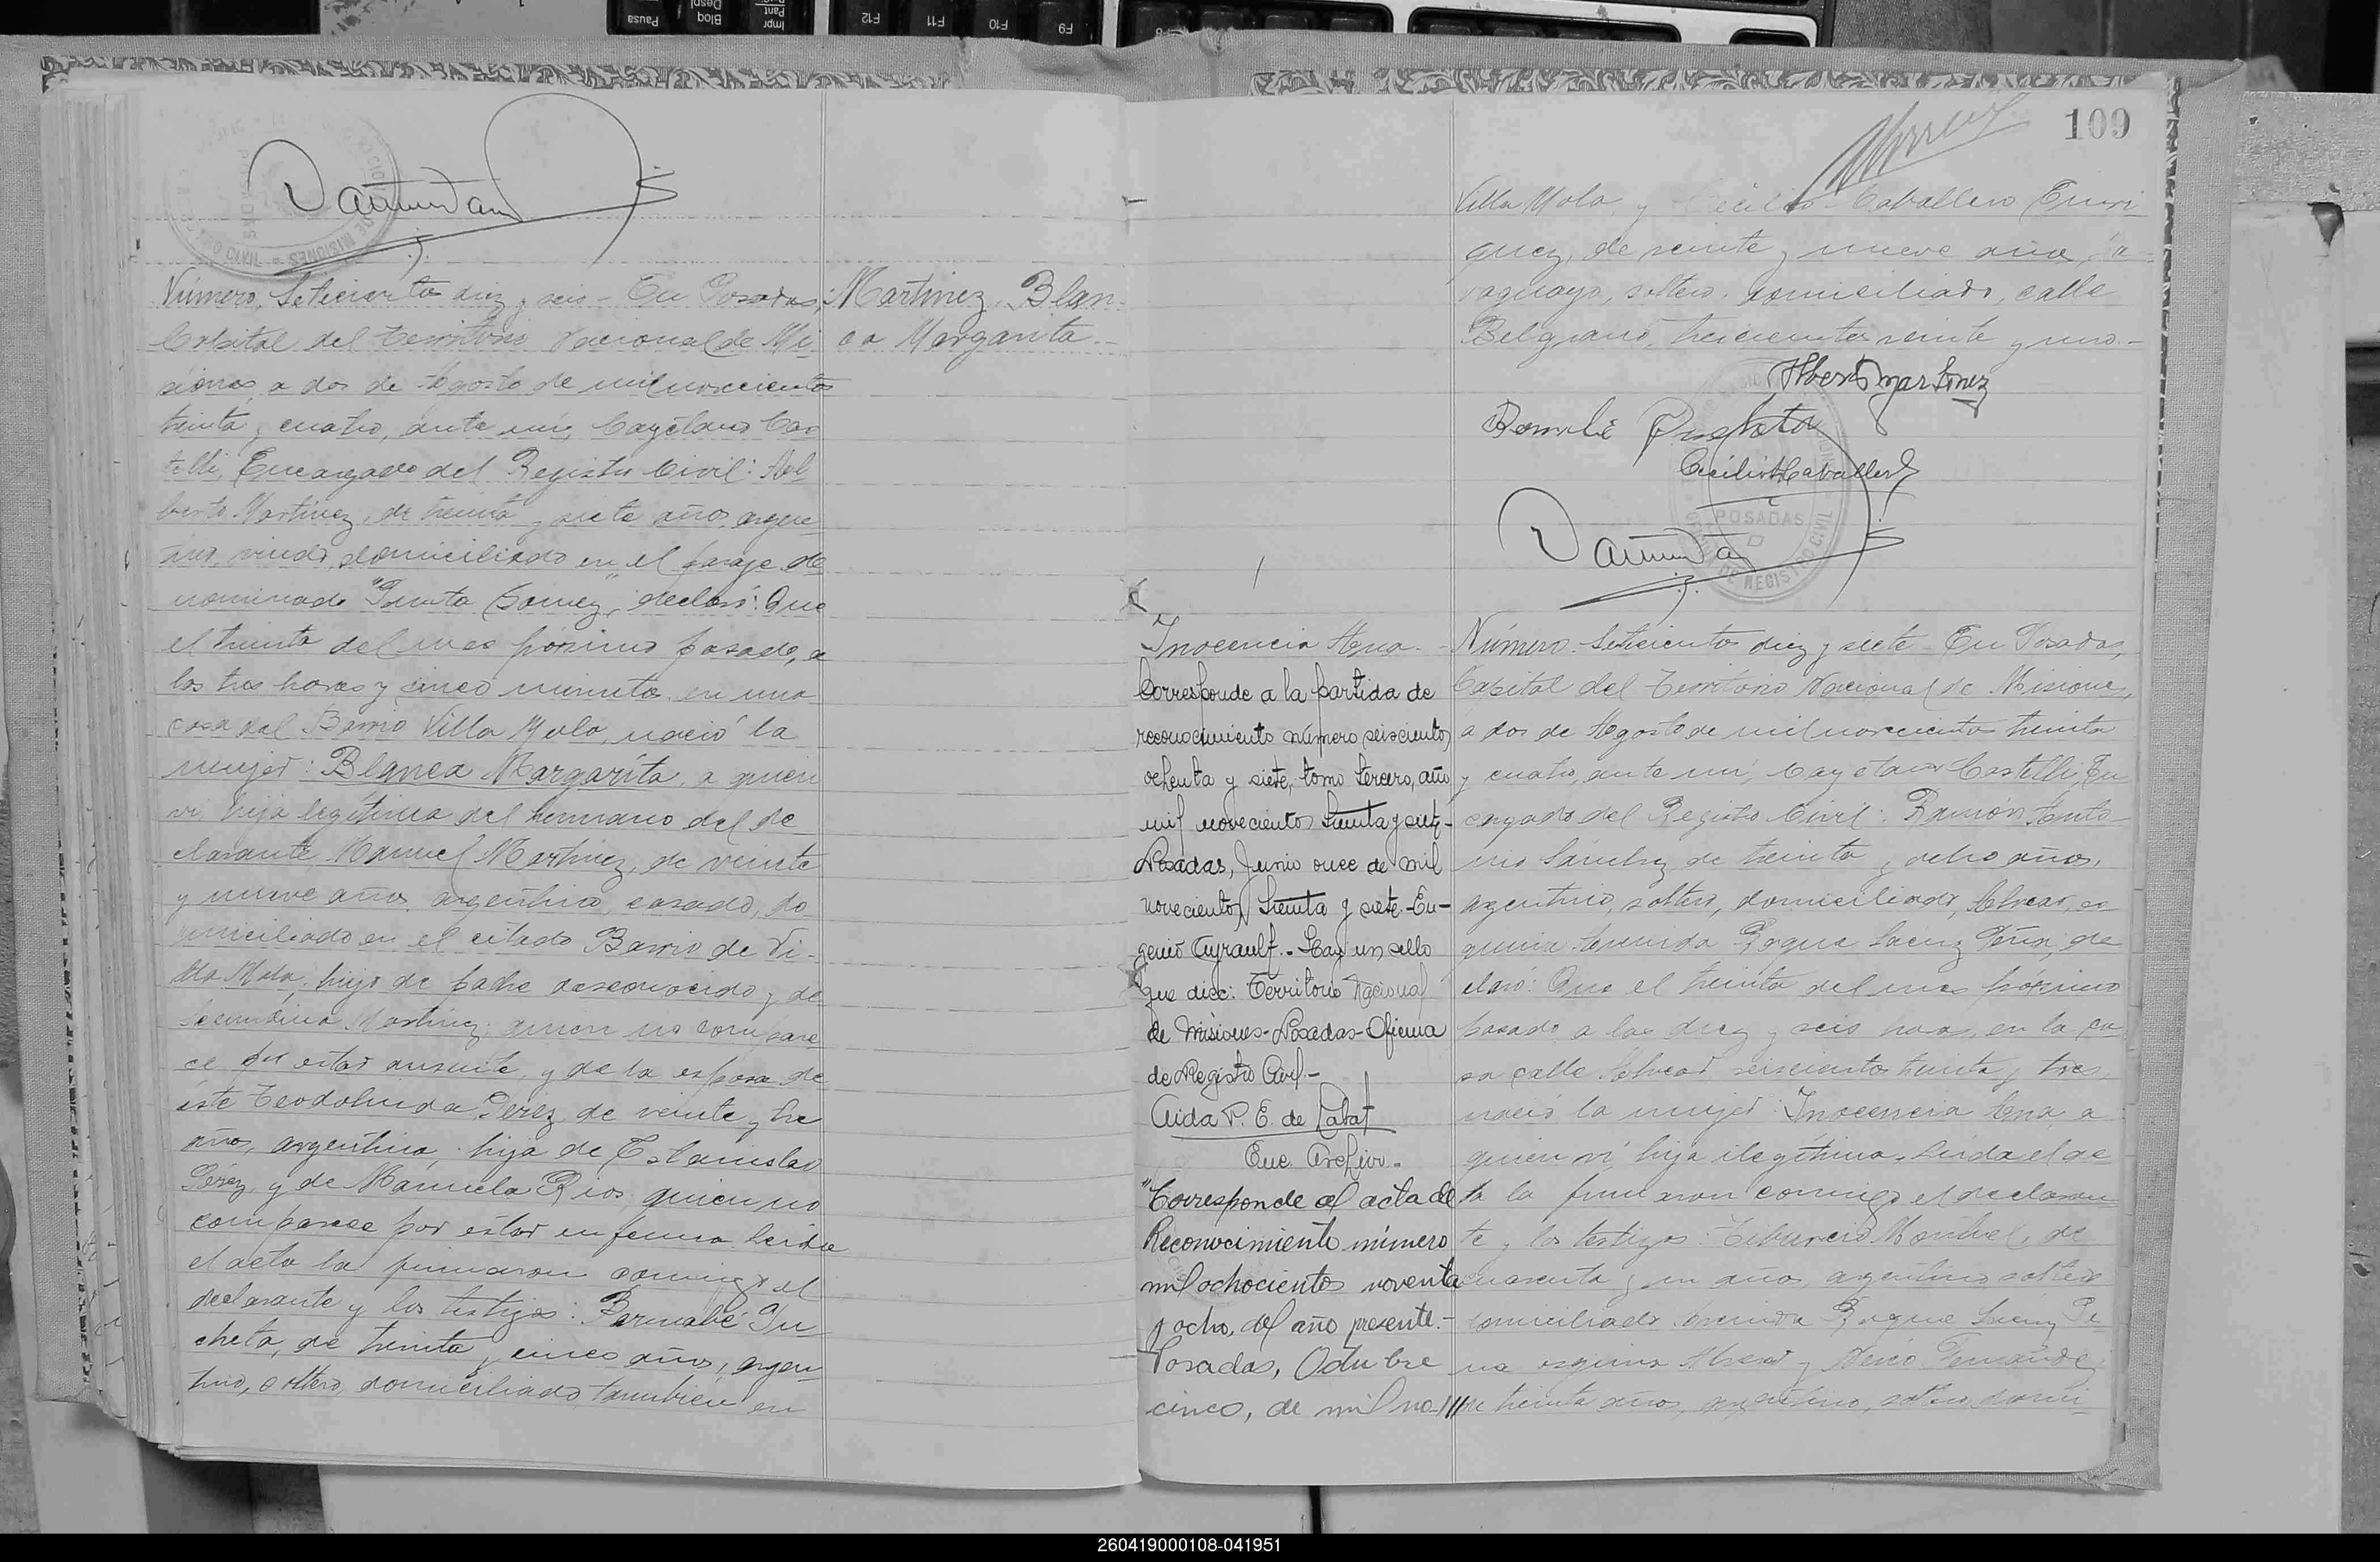 Número Setecientos diez y seis - En Posadas,
Capital del Territorio Nacional de Mi
siones, a dos de Agosto de mil novecientos
treinta y cuatro, ante mí, Cayetano Cas
telli, Encargado del Registro Civil: Al
berto Martinez, de treinta y siete años, argen
tino, viudo, domiciliado en el paraje de
nominado "Punta Gomez", declaró: Que
el treinta del mes próximo pasado, a
las tres horas y cinco minutos, en una
casa del Barrio Villa Mola, nació la
mujer: Blanca Margarita, a quien
vi, hija legítima del hermano del de
clarante, Manuel Martinez, de veinte
y nueve años, argentino, casado, do
miciliado en el citado Barrio de Vi-
lla Mola; hijo de padre desconocido y de
Secundina Martinez; quien no compare
ce por estar ausente, y de la esposa de
éste Teodolinda Perez, de veinte y tre
años, argentina, hija de Estanislao
Pérez, y de Manuela Rios, quien no
comparece por estar enferma. Leida
el acta la firmaron conmigo el
declarante y los testigos: Bernabé Pu
cheta, de treinta y cinco años, argen
tino, soltero, domiciliado tambien en
Martinez, Blan-
ca Margarita.-
109
Villa Mola y Cecilio Caballero Enri
quez, de veinte y nueve años, pa-
raguayo, soltero, domiciliado, calle
Belgrano, trescientos veinte y uno.-
Alberto Martinez
Bernabé Pucheta
Cecilio Caballero
POSADAS
Inocencia Ana.-
Corresponde a la partida de
reconocimiento número seiscientos
ochenta y siete, tomo tercero, año
mil novecientos treinta y siete-
Posadas, Junio once de mil
novecientos treinta y siete-Eu-
genio Ayrault.- Hay un sello
que dice: Territorio Nacional
de Misiones-Posadas-Oficina
de Registro Civil-
Aida P. E. de Labat
Enc. Archivo.-
"Corresponde al acta de
Reconocimiento número
mil ochocientos noventa
y ocho, del año presente.-
Posadas, Octubre
cinco, de mil no-///
Número. Setecientos diez y siete - En Posadas,
Capital del Territorio Nacional de Misiones,
a dos de Agosto de mil novecientos treinta
y cuatro, ante mí, Cayetano Castelli, En
cargado del Registro Civil: Ramón Anto-
nio Sanchez, de treinta y ocho años,
argentino, soltero, domiciliado, Alvear, es
quina Avenida Roque Saenz Peña, de
claró: Que el treinta del mes próximo
pasado a las diez y seis horas, en la ca
sa calle Alvear seiscientos treinta y tres,
nació la mujer: Inocencia Ana a
quien vi, hija ilegítima. Leida el ac
ta la firmaron conmigo el declaran
te y los testigos: Tiburcio Montiel, de
cuarenta y un años, argentino soltero
domiciliado Avenida Roque Saenz Pe
ña esquina Alvear y Fernandez
de treinta años, argentino, soltero, domi-
260419000108-041951